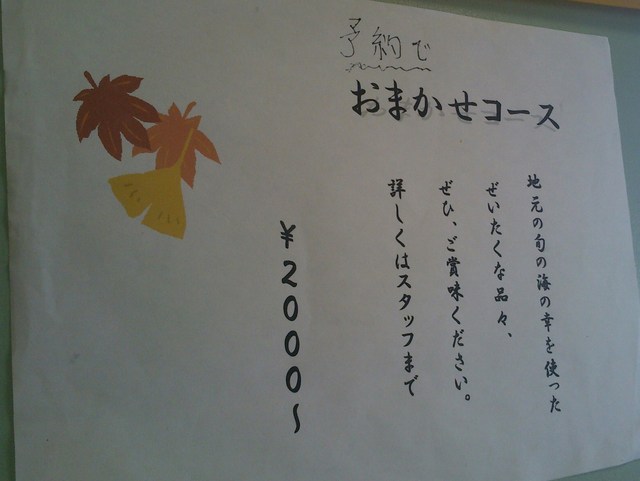 予約で
おまかせコース
地元の旬の海の幸を使った
ぜいたくな品々、
ぜひ、ご賞味ください。
詳しくはスタッフまで
￥2000～